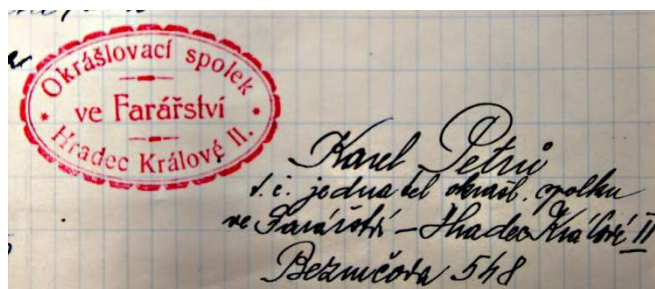 Okrášlovací spolek
ve Farářství
Hradec Králové II.
Karel Petrů
t. č. jednatel okrášl. spolku
ve Farářství – Hradec Králové II
Bezručova 548